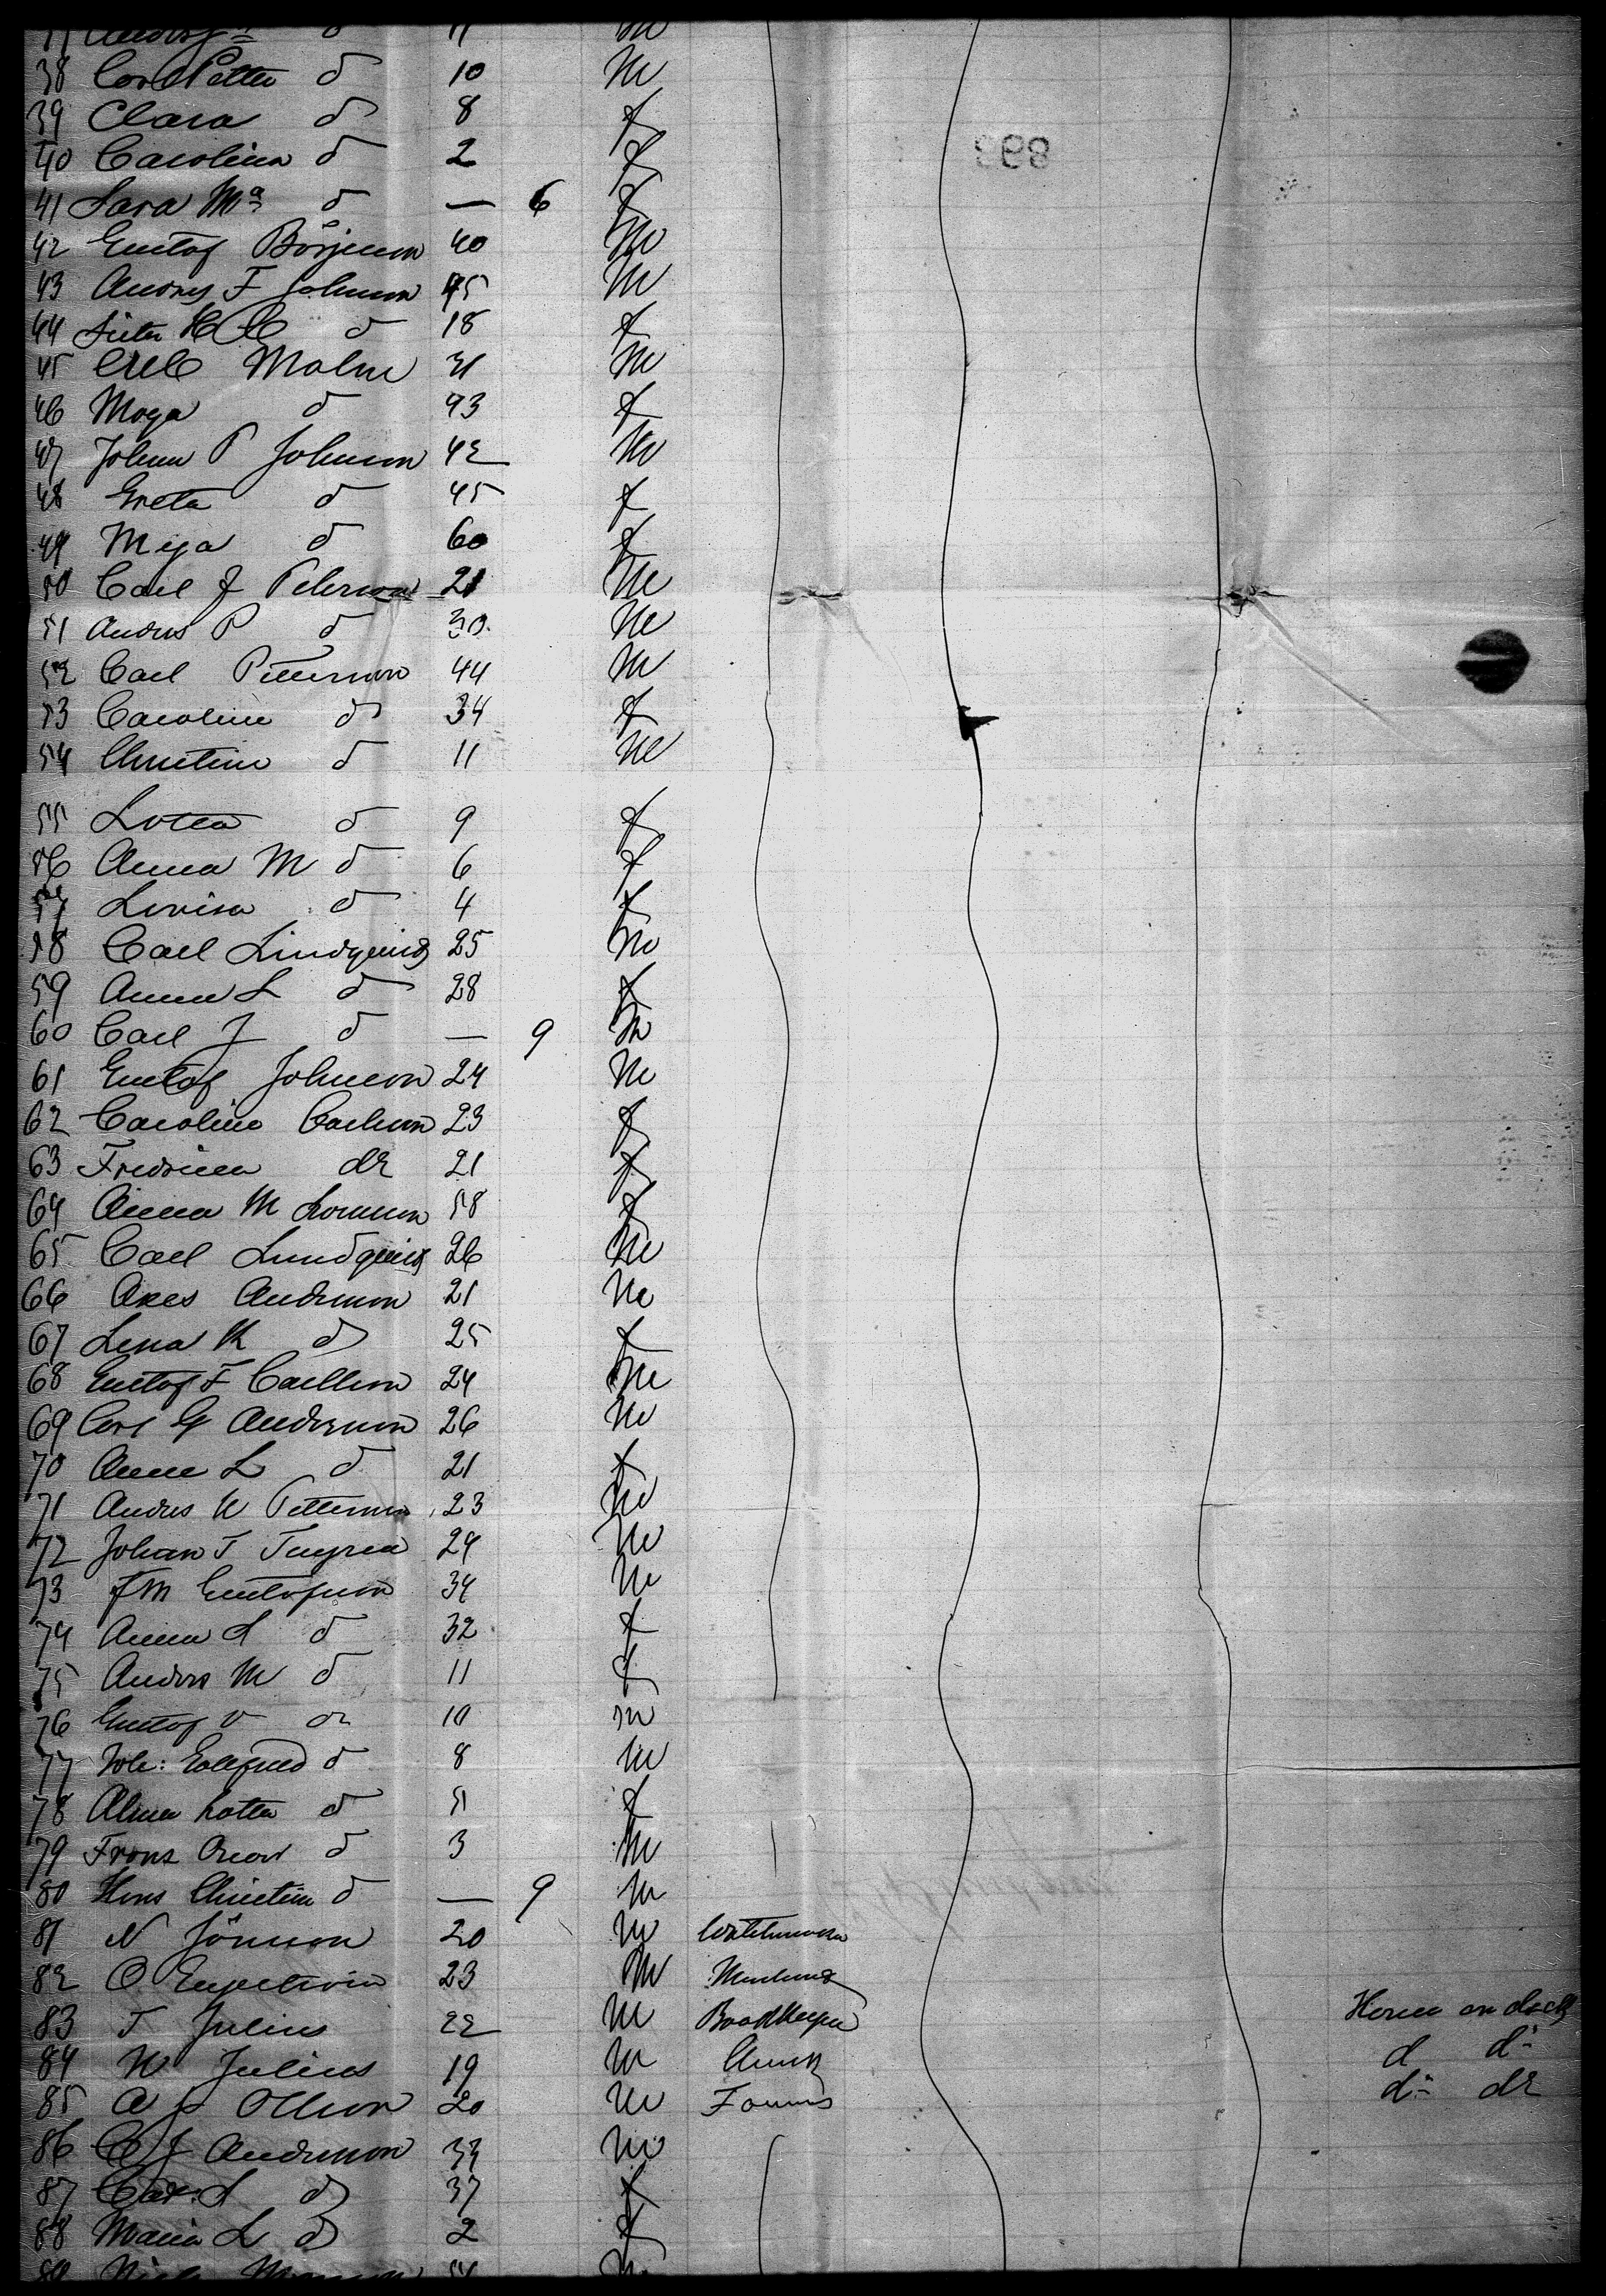 38 Carl Petter d 10 m
39 Clara d 8 f
40 Carolina d 2 f
893
41 Sara Ma d — 6 f
42 Gustaf Börjesson 40 m
43 Anders F Johnson 45 m
44 Sister d 18 f
45 Malm 31 m
46 d 43 f
47 Johan P Johnson 42 m
48 Greta d 45 f
49 Maja d 60 f
50 Carl J Peterson 21 m
51 Anders P d 30 m
52 Carl Petterson 44 m
53 Caroline d 34 f
54 Christine d 11 m
55 Lotta d 9 f
56 Anna M d 6 f
57 Lovisa d 4 f
58 Carl Lindqvist 25 m
59 Anna L d 28 f
60 Carl J d — 9 m
61 Gustaf Johnson 24 m
62 Caroline Carlson 23 f
63 Fredrica do 21 f
64 Anna M 58 f
65 Carl Lundqvist 26 m
66 Anderson 21 m
67 Lena K d 25 f
68 Gustaf F Carlson 24 m
69 Carl G Anderson 26 m
70 Anna L d 21 f
71 Anders W Petterson 23 m
72 Johan T 24 m
73 J M Gustafson 34 m
74 Anna S d 32 f
75 Anders M d 11 f
76 Gustaf V do 10 m
77 Joh: d 8 m
78 Alma Lotta d 5 f
79 Frans Oscar d 3 m
80 Hans Christian d — 9 m
81 N Jönsson 20 m Watchmaker
82 O 23 m
83 T Julius 22 m Bookkeeper on deck
84 W Julius 19 m d do
85 A P Ollson 20 m Farmer do do
86 C J Anderson 33 m
87 Car: S d 37 f
88 Maria L d 2 f